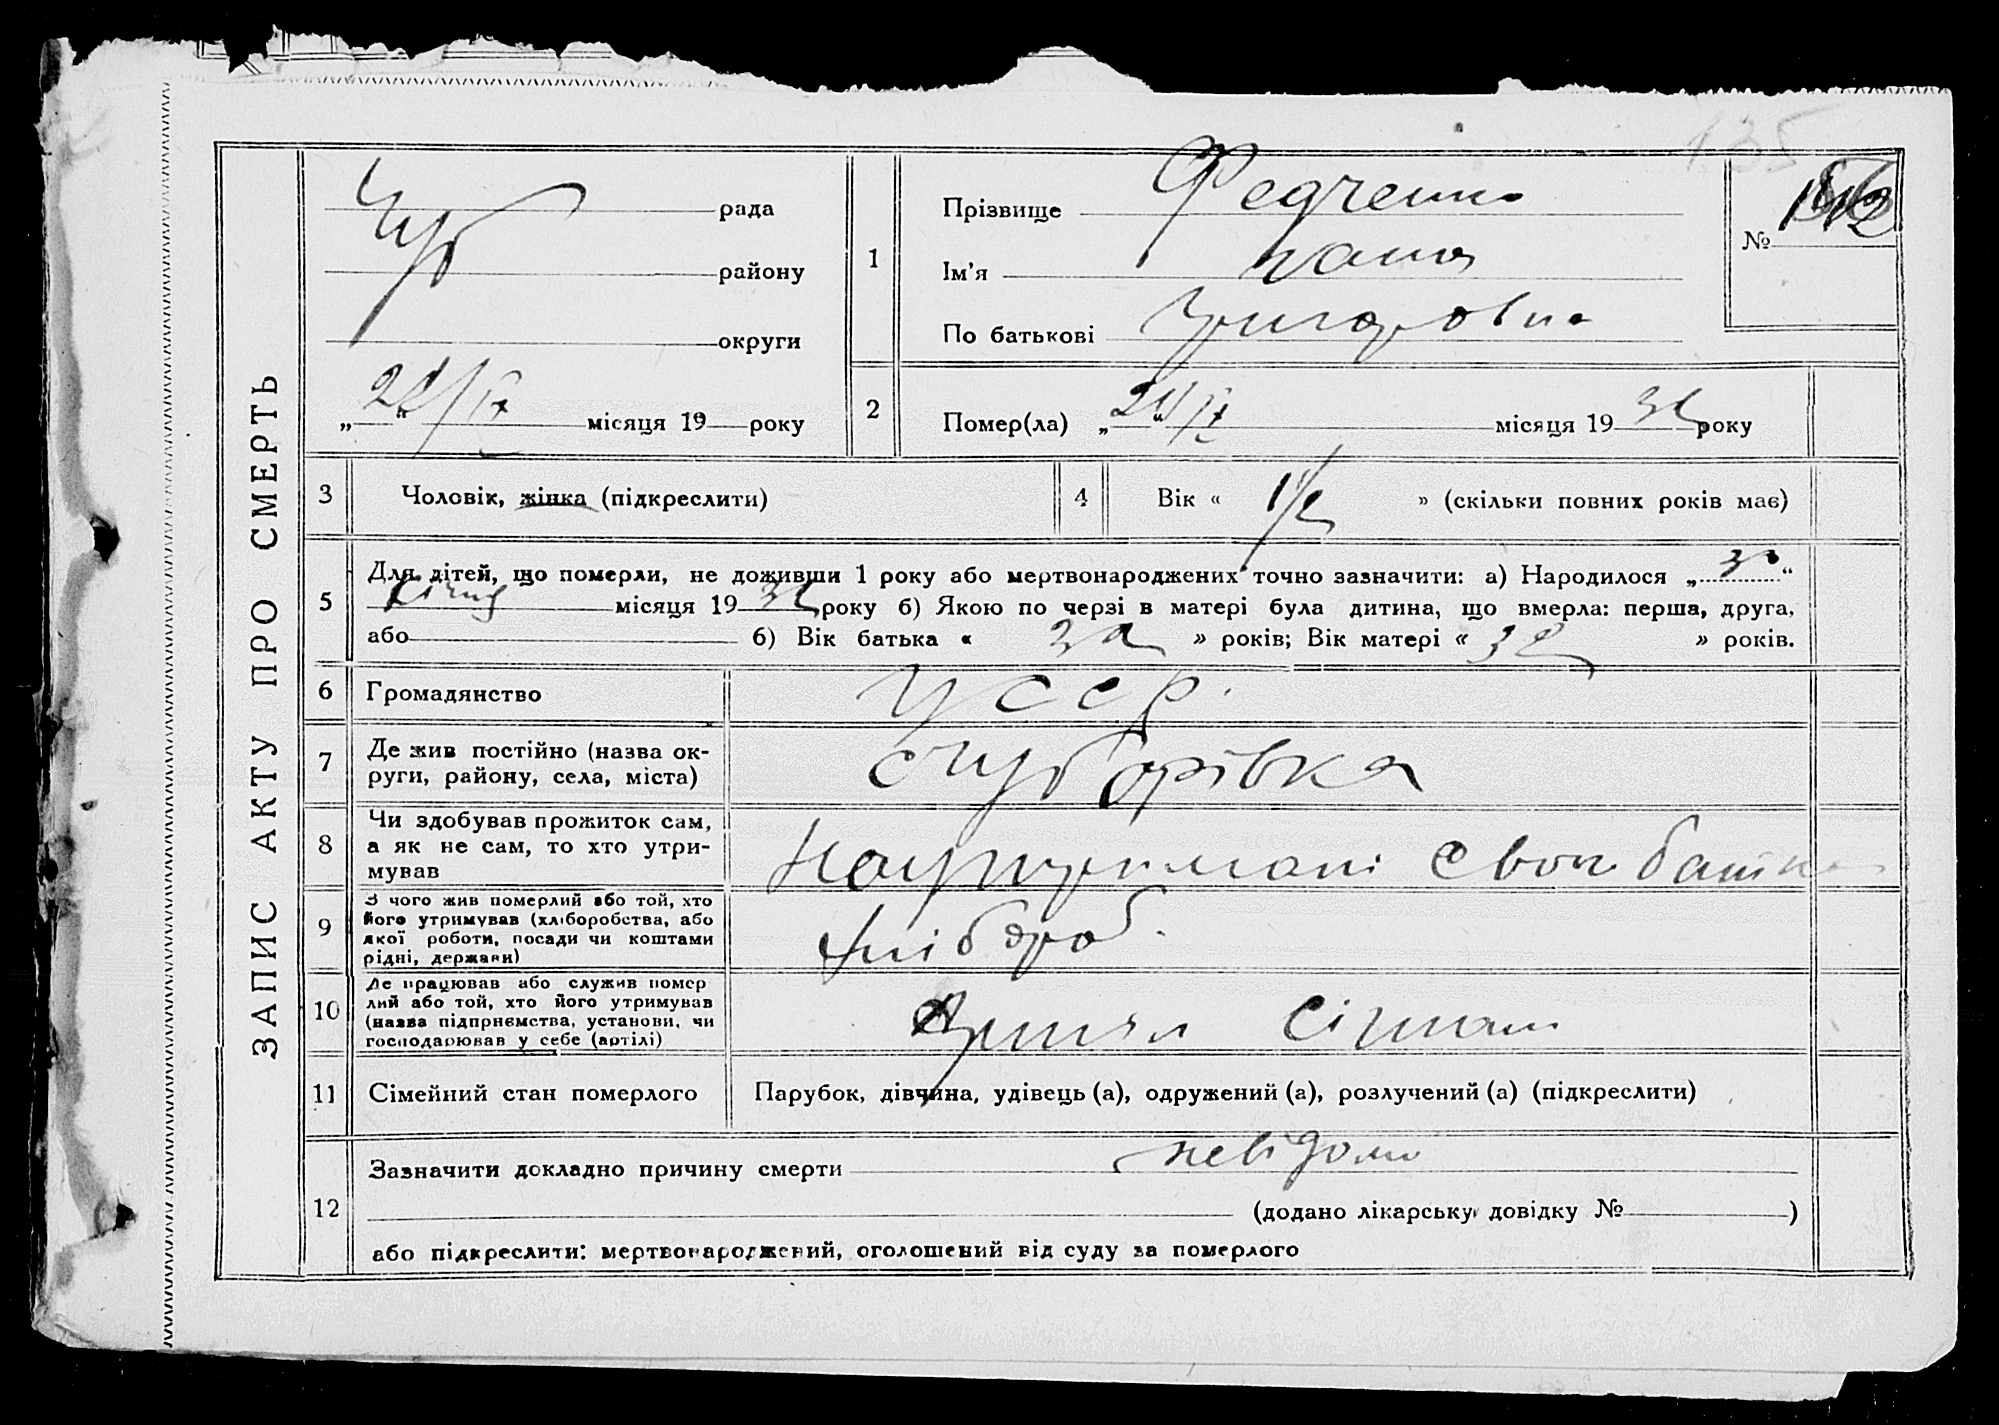 135
ЗАПИС АКТУ ПРО СМЕРТЬ
Чуб рада
району
округи
„ “ місяця 19 року
1
Прізвище Федченко
Ім'я
По батькові Григоровна
№
2
Помер(ла) „ “ місяця 19 32 року
3 Чоловік, жінка (підкреслити)
4 Вік « 1/2 » (скільки повних років має)
5
Для дітей, що померли, не доживши 1 року або мертвонароджених точно зазначити: а) Народилося „ “
місяця 19 32 року б) Якою по черзі в матері була дитина, що вмерла: перша, друга,
або б) Вік батька « » років; Вік матері « 32 » років.
6 Громадянство УССР.
7
Де жив постійно (назва ок-
руги, району, села, міста)
с Чуборівка
8
Чи здобував прожиток сам,
а як не сам, то хто утри-
мував
На утримані свого батька
9
З чого жив померлий або той, хто
його утримував (хліборобства, або
якої роботи, посади чи коштами
рідні, держави)
хлібороб.
10
Де працював або служив помер
лий або той, хто його утримував
(назва підприємства, установи, чи
господарював у себе (артілі)
11 Сімейний стан померлого Парубок, дівчина, удівець (а), одружений (а), розлучений (а) (підкреслити)
12
Зазначити докладно причину смерти невідомо
(додано лікарську довідку № )
або підкреслити: мертвонароджений, оголошений від суду за померлого